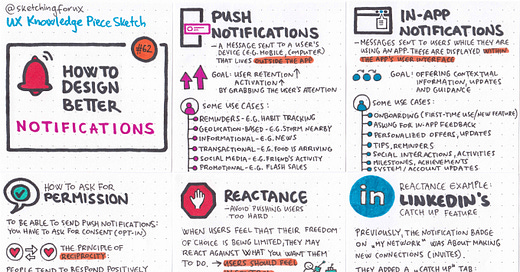 @sketchingforux
UX Knowledge Piece Sketch
#62
HOW TO
DESIGN
BETTER
NOTIFICATIONS
PUSH
NOTIFICATIONS
- A MESSAGE SENT TO A USER'S
DEVICE (E.G. MOBILE, COMPUTER)
THAT LIVES OUTSIDE THE APP
GOAL: USER RETENTION↑
ACTIVATION↑
BY GRABBING THE USER'S ATTENTION
SOME USE CASES:
REMINDERS - E.G. HABIT TRACKING
GEOLOCATION-BASED - E.G. STORM NEARBY
INFORMATIONAL - E.G. NEWS
TRANSACTIONAL - E.G. FOOD IS ARRIVING
SOCIAL MEDIA - E.G. FRIEND'S ACTIVITY
PROMOTIONAL - E.G. FLASH SALES
IN-APP
NOTIFICATIONS
- MESSAGES SENT TO USERS WHILE THEY ARE
USING AN APP. THESE ARE DISPLAYED WITHIN
THE APP'S USER INTERFACE
GOAL: OFFERING CONTEXTUAL
INFORMATION, UPDATES
AND GUIDANCE
SOME USE CASES:
ONBOARDING (FIRST-TIME USE/NEW FEATURE)
ASKING FOR IN-APP FEEDBACK
PERSONALIZED OFFERS, UPDATES
TIPS, REMINDERS
SOCIAL INTERACTIONS, ACTIVITIES
MILESTONES, ACHIEVEMENTS
SYSTEM / ACCOUNT UPDATES
HOW TO ASK FOR
PERMISSION
TO BE ABLE TO SEND PUSH NOTIFICATIONS:
YOU HAVE TO ASK FOR CONSENT (OPT-IN)
THE PRINCIPLE OF
RECIPROCITY:
PEOPLE TEND TO RESPOND POSITIVELY
REACTANCE
- AVOID PUSHING USERS
TOO HARD
WHEN USERS FEEL THAT THEIR FREEDOM
OF CHOICE IS BEING LIMITED, THEY MAY
REACT AGAINST WHAT YOU WANT THEM
TO DO. → USERS SHOULD FEEL
in
REACTANCE EXAMPLE:
LINKEDIN'S
CATCH UP FEATURE
PREVIOUSLY, THE NOTIFICATION BADGE
ON „MY NETWORK" WAS ABOUT MAKING
NEW CONNECTIONS (INVITES).
THEY ADDED A „CATCH UP" TAB: